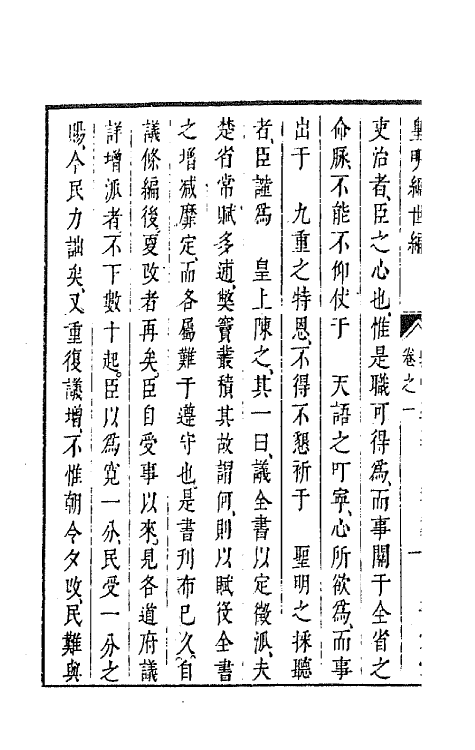 皇明經世編
卷之一
吏治者臣之心也惟是職可得爲而事關于全省之
命脈不能不仰仗于　天語之叮寧心所欲爲而事
出于　九重之特恩不得不懇祈于　聖明之採聽
者臣謹爲　皇上陳之其一曰議全書以定徵派夫
楚省常賦多逋獘竇叢積其故謂何則以賦役全書
之增減靡定而各屬難于遵守也是書刊布已久自
議條編後更改者再矣臣自受事以來見各道府議
詳增派者不下數十起臣以爲寬一分民受一分之
賜今民力詘矣又重復議增不惟朝令夕改民難與